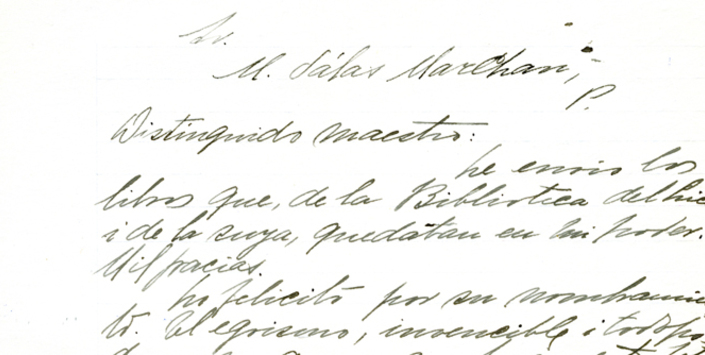 Sr.
M. Sálas Marchan,
P.
Distinguido maestro:
he envio los
libros que, de la Biblioteca del
i de la suya, quedaban en mi poder.
Mil gracias.
ho felicito por su nombramie
to. El egoismo, invencible i todopo